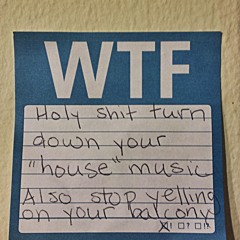 WTF
Holy shit turn
down your
"house" music
Also stop yelling
on your balcony